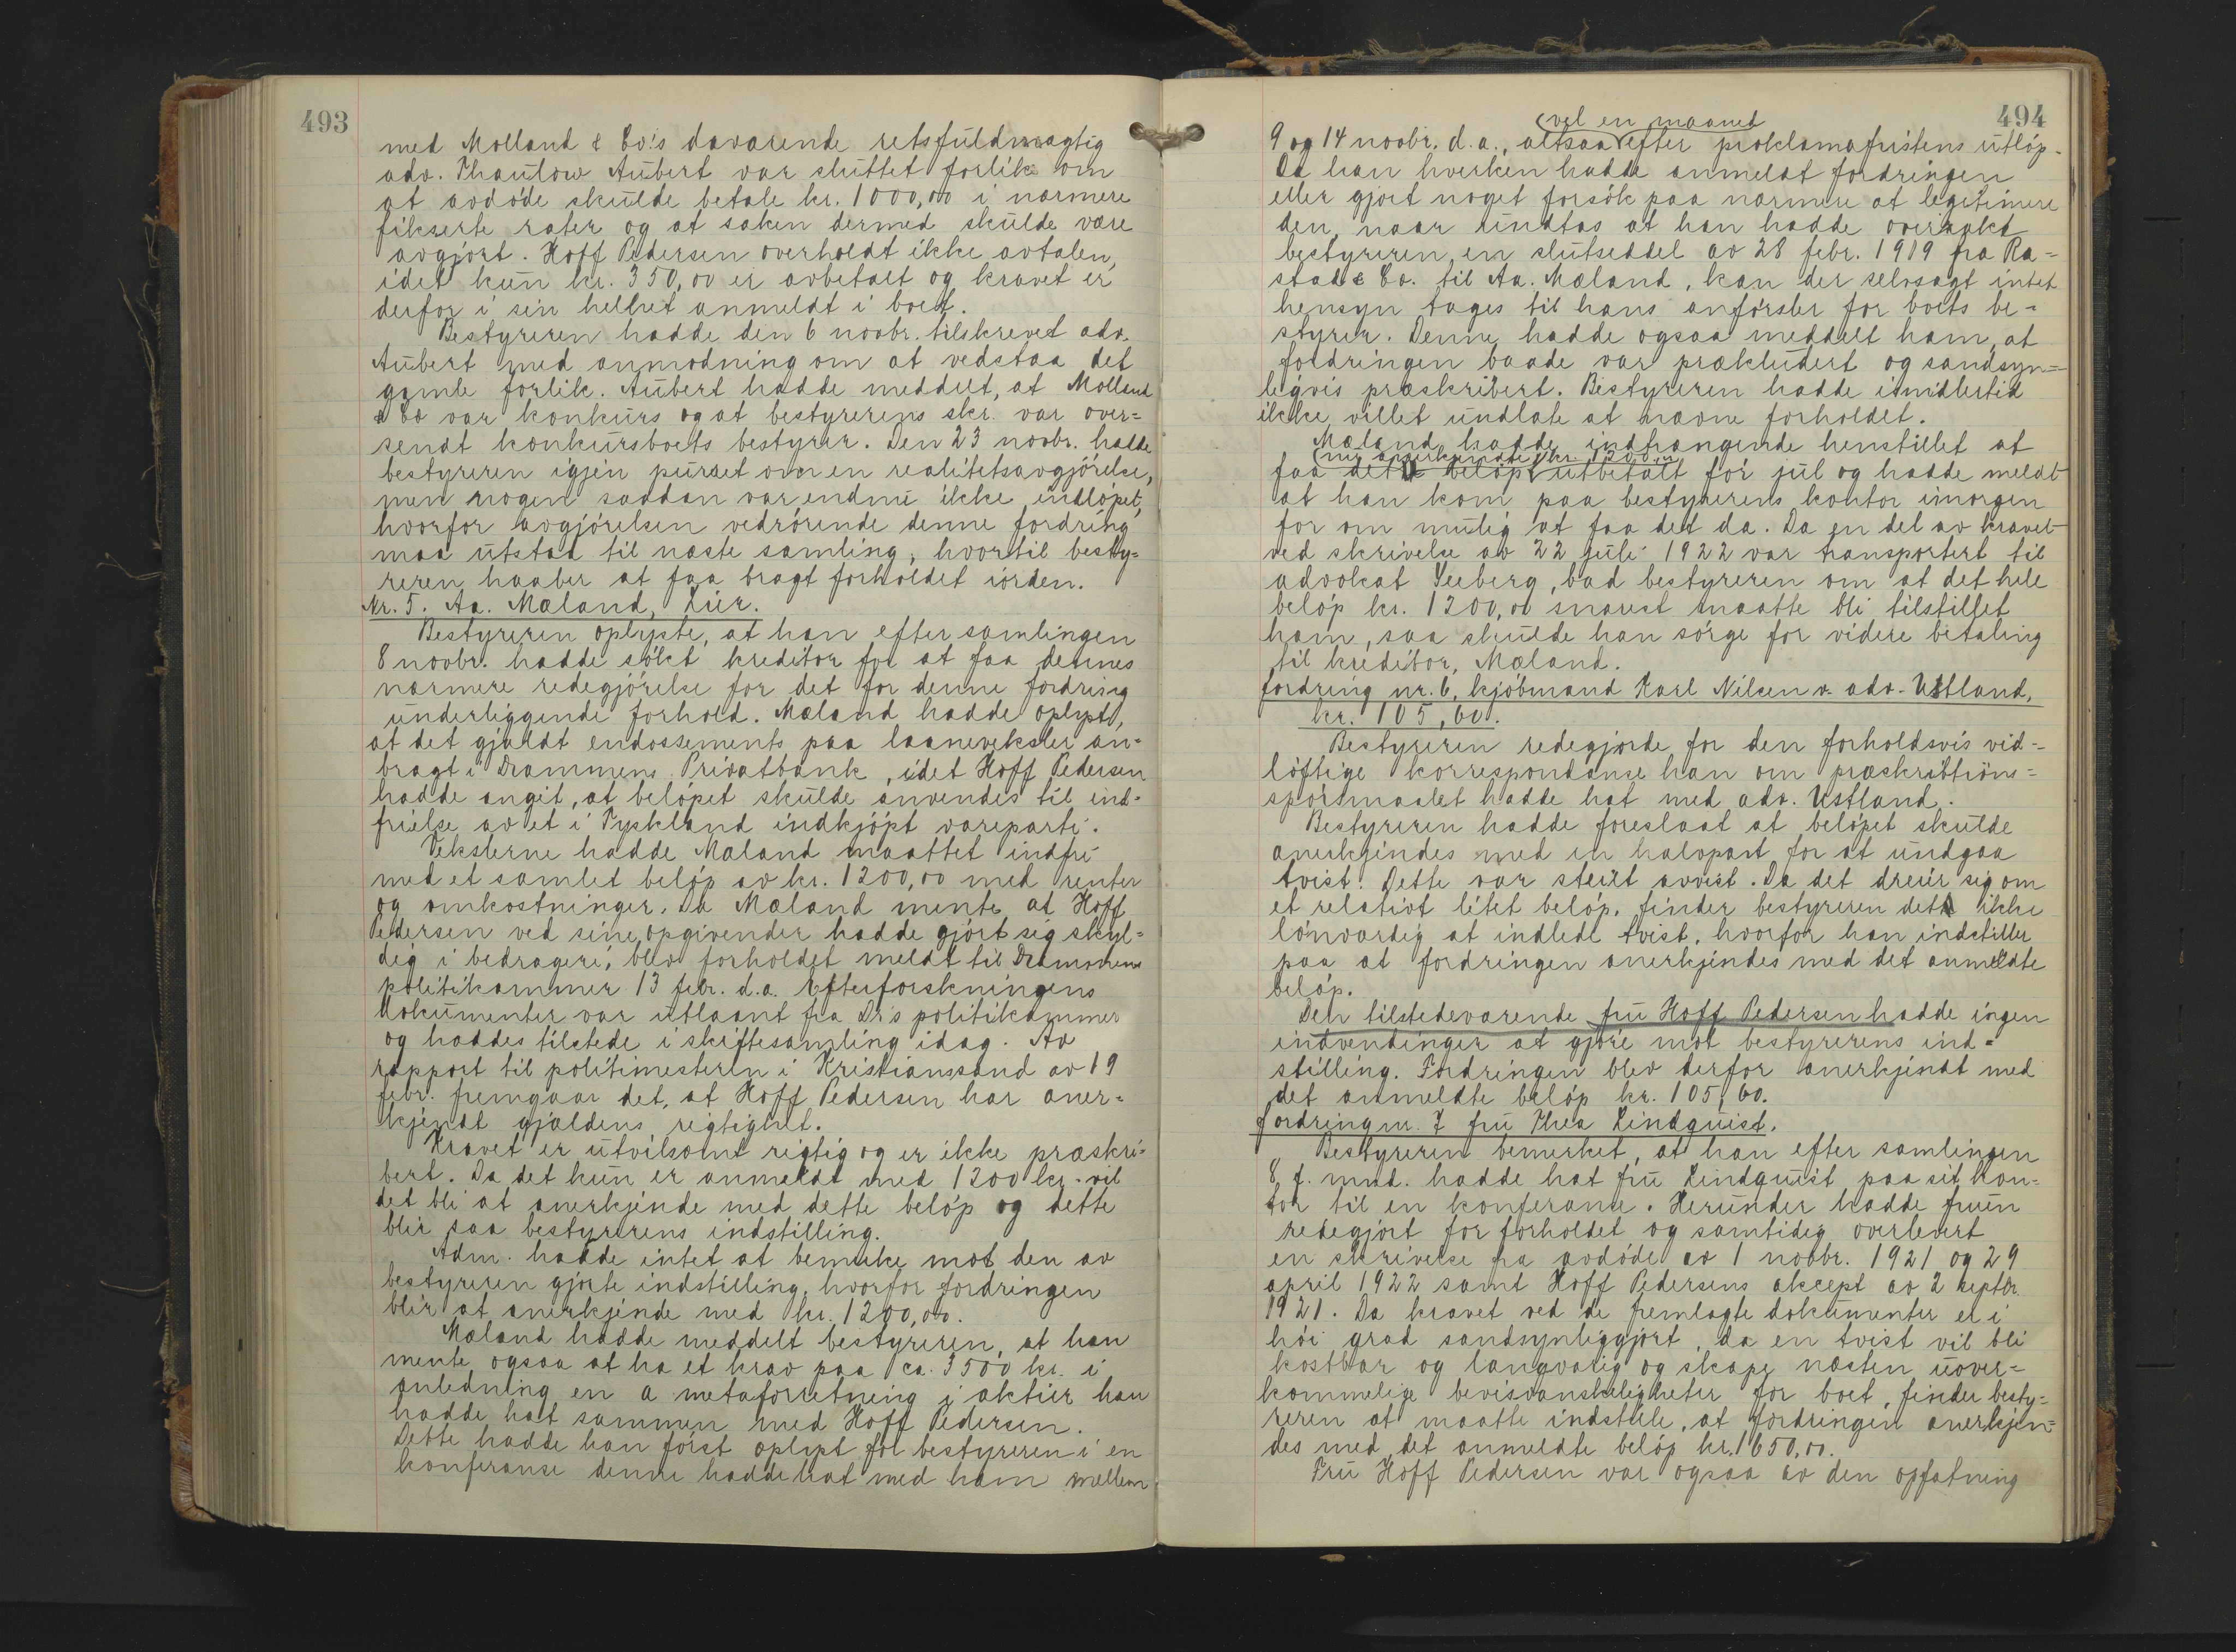 493
med Molland & Co.'s daværende retsfuldmægtig
adv. Thaulow Aubert var sluttet forlik om
at avdöde skulde betale kr. 1000,00 i nærmere
fikserte rater og at saken dermed skulde være
avgjort. Hoff Pedersen overholdt ikke avtalen,
idet kun kr. 350,00 er avbetalt og kravet er
derfor i sin helhet anmeldt i boet.
Bestyreren hadde den 6 novbr. tilskrevet adv.
Aubert med anmodning om at vedstaa det
gamle forlik. Aubert hadde meddelt, at Molland
& Co var konkurs og at bestyrerens skr. var over=
sendt konkursboets bestyrer. Den 23 novbr. hadde
bestyreren igjen purret om en realitetsavgjörelse,
men nogen saadan var endnu ikke indlöpet,
hvorfor avgjörelsen vedrörende denne fordring
maa utstaa til næste samling, hvortil besty=
reren haaber at faa bragt forholdet iorden.
Nr. 5. Aa. Mæland, Lier.
Bestyreren oplyste, at han efter samlingen
8 novbr. hadde sökt kreditor for at faa dennes
nærmere redegjörelse for det for denne fordring
underliggende forhold. Mæland hadde oplyst,
at det gjaldt endossements paa laaneveksler an=
bragt i Drammens Privatbank, idet Hoff Pedersen
hadde angit, at belöpet skulde anvendes til ind=
frielse av et i Tyskland indkjöpt vareparti.
Vekslerne hadde Mæland maattet indfri
med et samlet belöp av kr. 1200,00 med renter
og omkostninger. Da Mæland mente at Hoff
Pedersen ved sine opgivender hadde gjort sig skyl=
dig i bedrageri, blev forholdet meldt til Drammens
politikammer 13 febr. d.a. Efterforskningens
dokumenter var utlaant fra Dr's politikammer
og haddes tilstede i skiftesamling idag. Av
rapport til politimesteren i Kristianssand av 19
febr. fremgaar det, at Hoff Pedersen har aner=
kjendt gjældens rigtighet.
Kravet er utvilsomt rigtig og er ikke præskri=
bert. Da det kun er anmeldt med 1200 kr. vil
det bli at anerkjende med dette belöp og dette
blir saa bestyrerens indstilling.
Adm. hadde intet at bemerke mot den av
bestyreren gjorte indstilling, hvorfor fordringen
blir at anerkjende med kr. 1200,00.
Mæland hadde meddelt bestyreren, at han
mente ogsaa at ha et krav paa ca. 3500 kr. i
anledning en a metaforretning i aktier han
hadde hat sammen med Hoff Pedersen.
Dette hadde han först oplyst for bestyreren i en
konferanse denne hadde hat med ham mellem
494
vel en maaned
9 og 14 novbr. d.a., altsaa efter proklamafristens utlöp.
Da han hverken hadde anmeldt fordringen
eller gjort noget forsök paa nærmere at legitimere
den, naar undtas at han hadde overrakt
bestyreren en slutseddel av 28 febr. 1919 fra Ra=
stad & Co. til Aa. Mæland, kan der selvsagt intet
hensyn tages til hans anförsler for boets be=
styrer. Denne hadde ogsaa meddelt ham, at
fordringen baade var prækludert og sandsyn=
ligvis præskribert. Bestyreren hadde imidlertid
ikke villet undlate at nævne forholdet.
Mæland hadde indtrængende henstillet at
nu anerkjendte kr. 1200,00
faa det belöp utbetalt för jul og hadde meldt
at han kom paa bestyrerens kontor imorgen
for om mulig at faa det da. Da en del av kravet
ved skrivelse av 22 juli 1922 var transportert til
advokat Seeberg, bad bestyreren om at det hele
belöp kr. 1200,00 snarest maatte bli tilstillet
ham, saa skulde han sörge for videre betaling
til kreditor, Mæland.
Fordring nr. 6, kjöbmand Karl Nilsen v. adv. Ustland,
kr. 105,60.
Bestyreren redegjorde for den forholdsvis vid=
löftige korrespondanse han om præskriptions=
spörsmaalet hadde hat med adv. Ustland.
Bestyreren hadde foreslaat at belöpet skulde
anerkjendes med en halvpart for at undgaa
tvist. Dette var steilt avvist. Da det dreier sig om
et relativt litet belöp, finder bestyreren det ikke
lönværdig at indlede tvist, hvorfor han indstiller
paa at fordringen anerkjendes med det anmeldte
belöp.
Den tilstedeværende fru Hoff Pedersen hadde ingen
indvendinger at gjöre mot bestyrerens ind=
stilling. Fordringen blev derfor anerkjendt med
det anmeldte belöp kr. 105,60.
Fordring nr. 7 fru Thea Lindquist.
Bestyreren bemerket, at han efter samlingen
8 f. mnd. hadde hat fru Lindquist paa sit kon=
tor til en konferanse. Herunder hadde fruen
redegjort for forholdet og samtidig overlevert
en skrivelse fra avdöde av 1 novbr. 1921 og 29
april 1922 samt Hoff Pedersens aksept av 2 septbr.
1921. Da kravet ved de fremlagte dokumenter er i
höi grad sandsynliggjort, da en tvist vil bli
kostbar og langvarig og skape næsten uover=
kommelige bevisvanskeligheter for boet, finder besty=
reren at maatte indstille, at fordringen anerkjen=
des med det anmeldte belöp kr. 1650,00.
Fru Hoff Pedersen var ogsaa av den opfatning